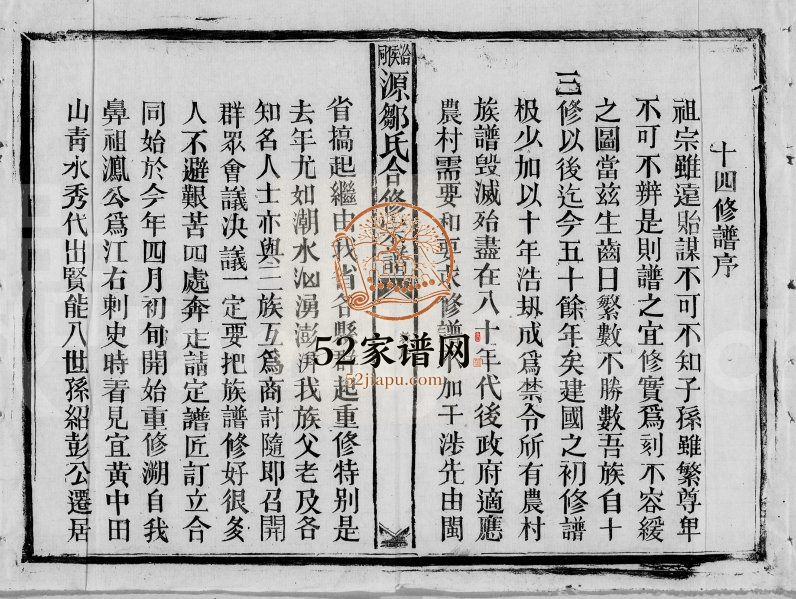 十四修譜序
祖宗雖遠貽謀不可不知子孫雖繁尊卑
不可不辨是則譜之宜修實爲刻不容緩
之圖當兹生齒日繁數不勝數吾族自十
三修以後迄今五十餘年矣建國之初修譜
极少加以十年浩劫成爲禁令所有農村
族譜毀滅殆盡在八十年代後政府適應
農村需要和要求修譜不加干涉先由閩
源鄒氏合修
省搞起繼由我省各縣起重修特别是
去年尤如潮水汹湧澎湃我族父老及各
知名人士亦與二族互爲商討隨即召開
群眾會議决議一定要把族譜修好很多
人不避艱苦四處奔走請定譜匠訂立合
同始於今年四月初旬開始重修溯自我
鼻祖鳳公爲江右刺史時看見宜黄中田
山青水秀代出賢能八世孫紹彭公遷居
52家谱网
52jiapu.com